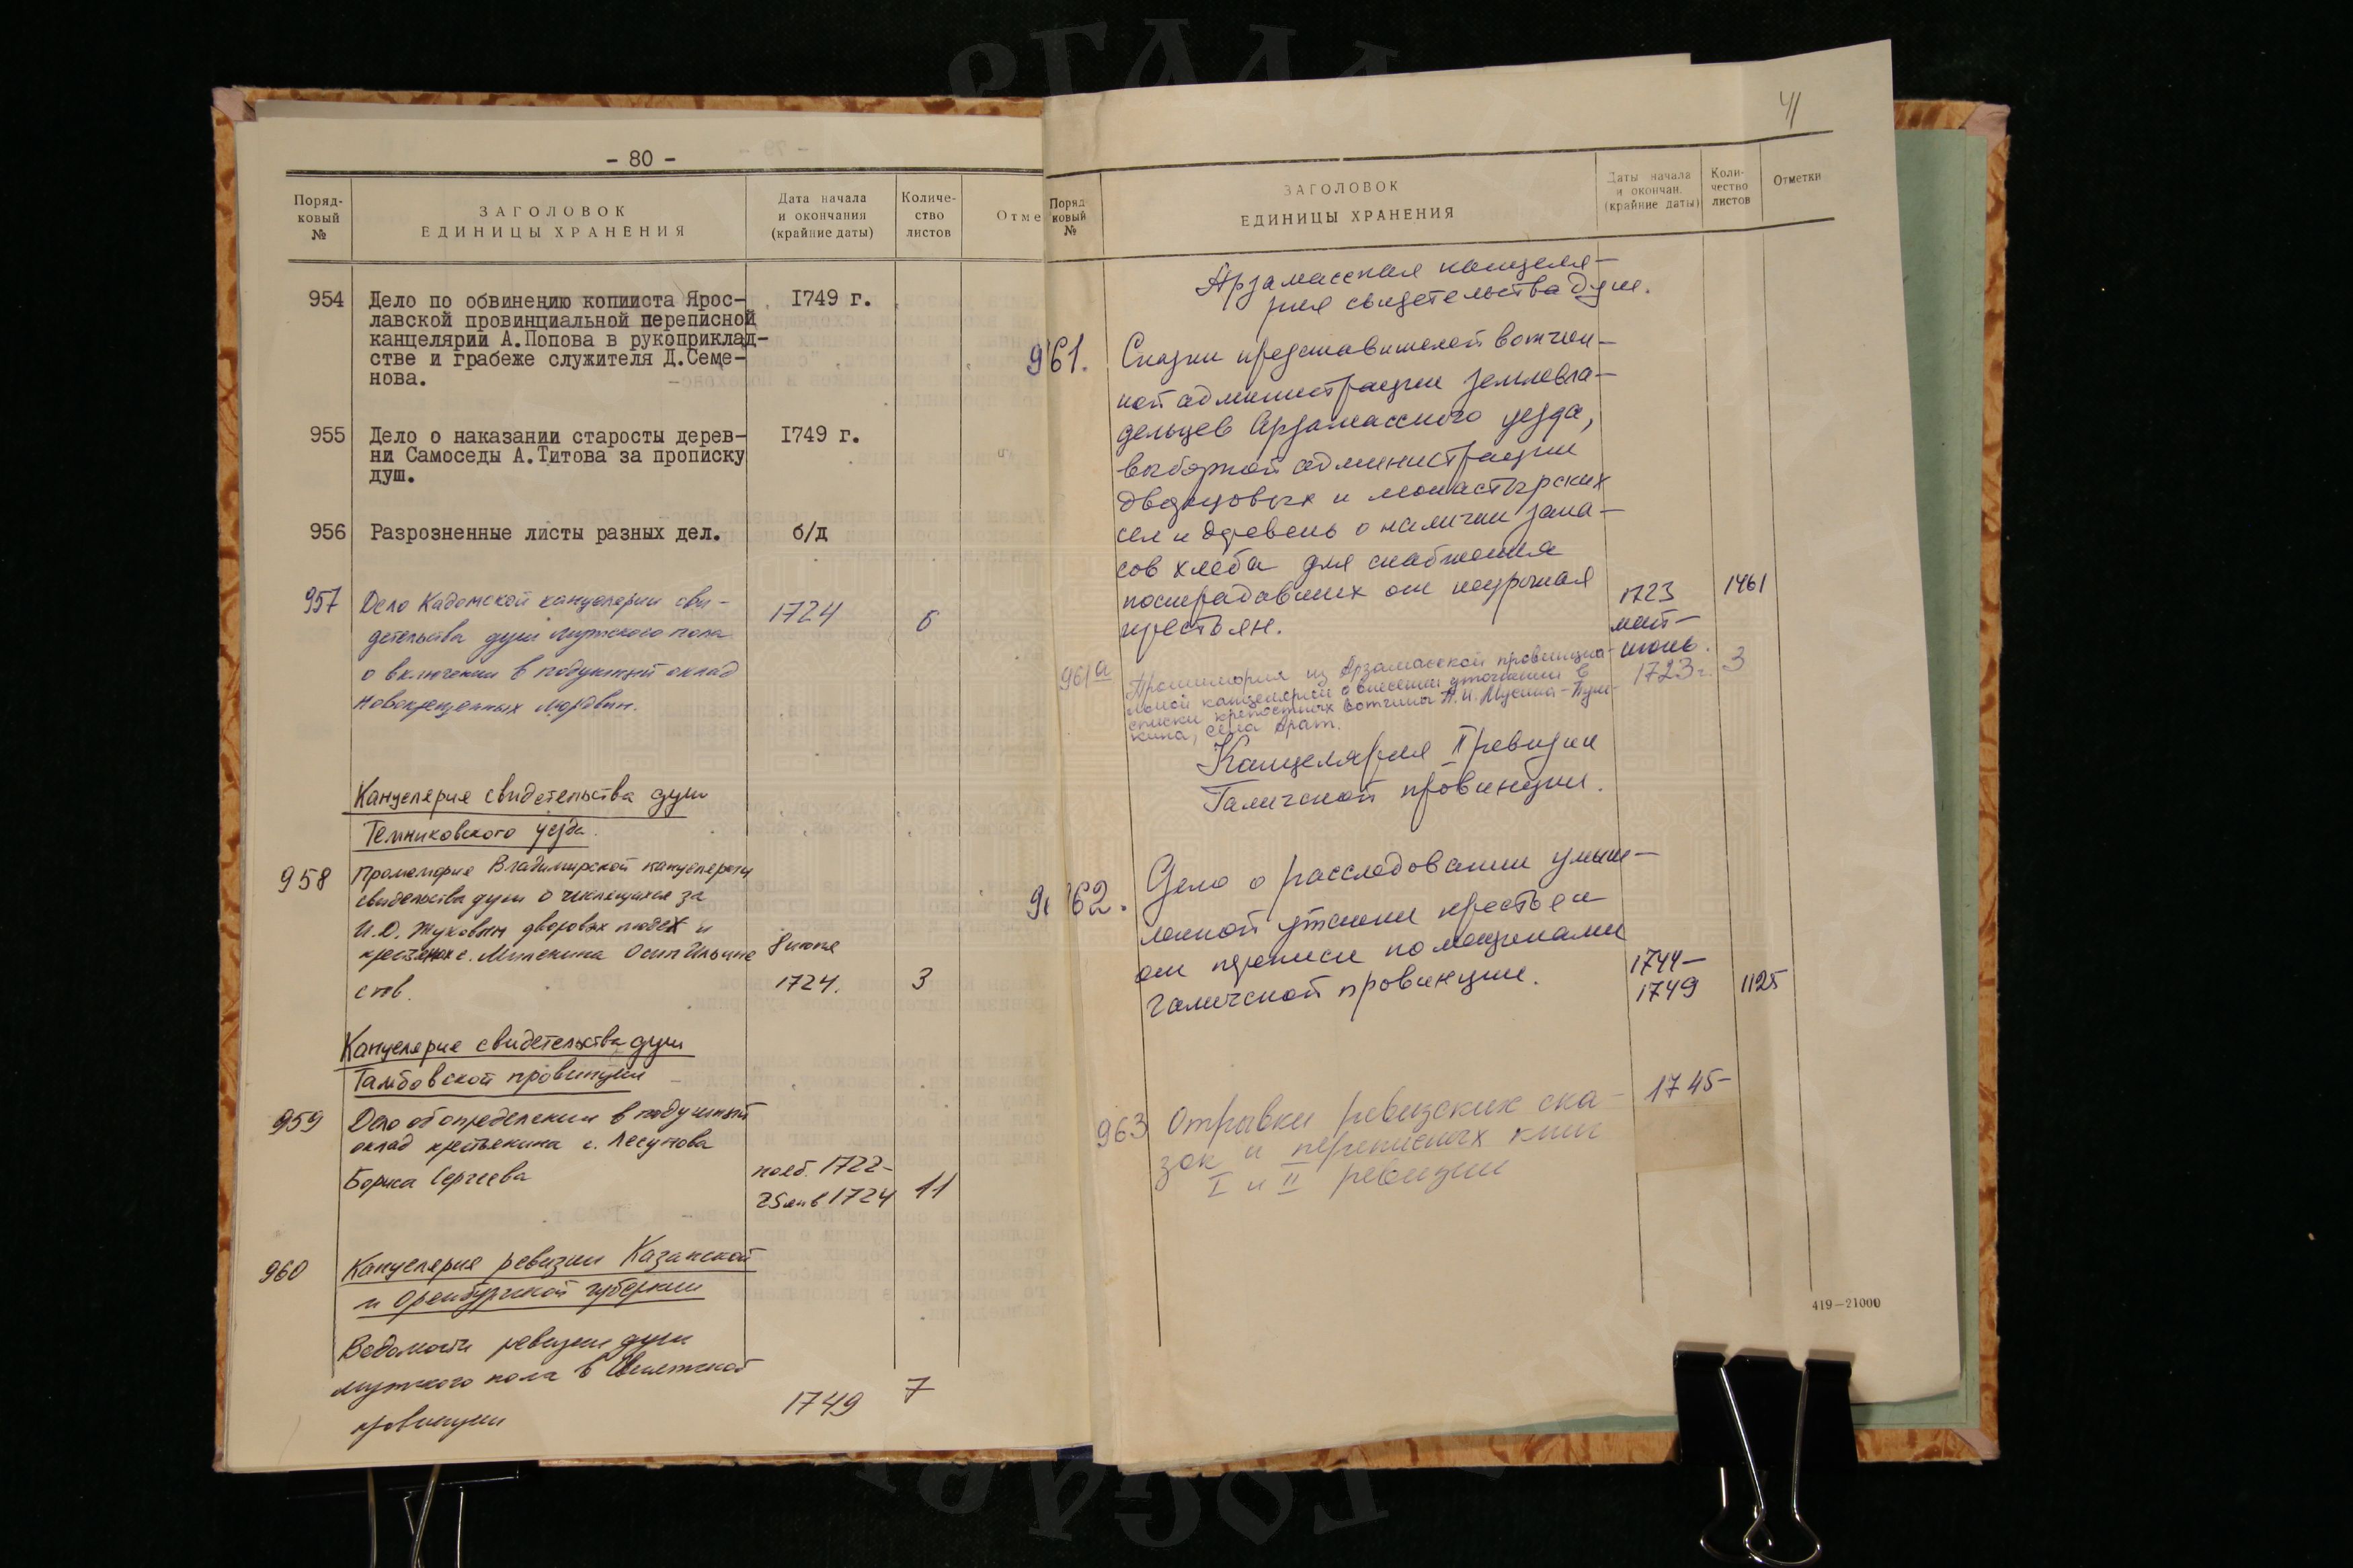 - 80 -
Поряд-
ковый
№
ЗАГОЛОВОК
ЕДИНИЦЫ ХРАНЕНИЯ
Дата начала
и окончания
(крайние даты)
Количе-
ство
листов
Отме
954 Дело по обвинению копииста Ярос- 1749 г.
лавской провинциальной переписной
канцелярии А.Попова в рукоприклад-
стве и грабеже служителя Д.Семе-
нова.
955 Дело о наказании старосты дерев- 1749 г.
ни Самоседы А.Титова за прописку
душ.
956 Разрозненные листы разных дел. б/д
957 Дело Кадомской канцелярии сви- 1724 6
детельства душ мужского пола
о включении в подушный оклад
новокрещенных мордвин.
Канцелярия свидетельства душ
Темниковского уезда.
958 Промемория Владимирской канцелярии
свидетельства душ о числящихся за
И.О. Жуковым дворовых людех и
крестьянах с. Осип Ильине 8 июня
1724. 3
Канцелярия свидетельства душ
Тамбовской провинции
959 Дело об определении в подушный
оклад крестьянина с. Лесунова
Бориса Сергеева нояб. 1722-
25 янв 1724 11
960 Канцелярия ревизии Казанской
и Оренбургской губернии
Ведомости ревизии душ
мужского пола в Свияжской
провинции 1749 7
41
Поряд
ковый
№
ЗАГОЛОВОК
ЕДИНИЦЫ ХРАНЕНИЯ
Даты начала
и окончан.
(крайние даты)
Коли-
чество
листов
Отметки
Арзамасская канцеля-
рия свидетельства душ.
961. Сказки представителей вотчин-
ной администрации землевла-
дельцев Арзамасского уезда,
выборной администрации
дворцовых и монастырских
сел и деревень о наличии запа-
сов хлеба для снабжения
пострадавших от неурожая 1723 1461
крестьян. май-
июнь.
961а Промемория из Арзамасской провинциа- 1723 г. 3
льной канцелярии о внесении уточнений в
списки крепостных вотчины П.И. Мусина-Пуш-
кина, села Арат.
Канцелярия II ревизии
Галичской провинции.
962. Дело о расследовании умыш-
ленной утайки крестьян
от переписи помещиками 1744-
Галичской провинции. 1749 1125
963 Отрывки ревизских ска- 1745-
зок и переписных книг
I и II ревизии
419—21000